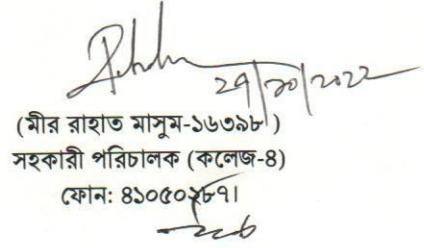 ২৭/১০/২০২২
(মীর রাহাত মাসুম-১৬৩৯৮)
সহকারী পরিচালক (কলেজ-৪)
ফোন: ৪১০৫০২৮৭।